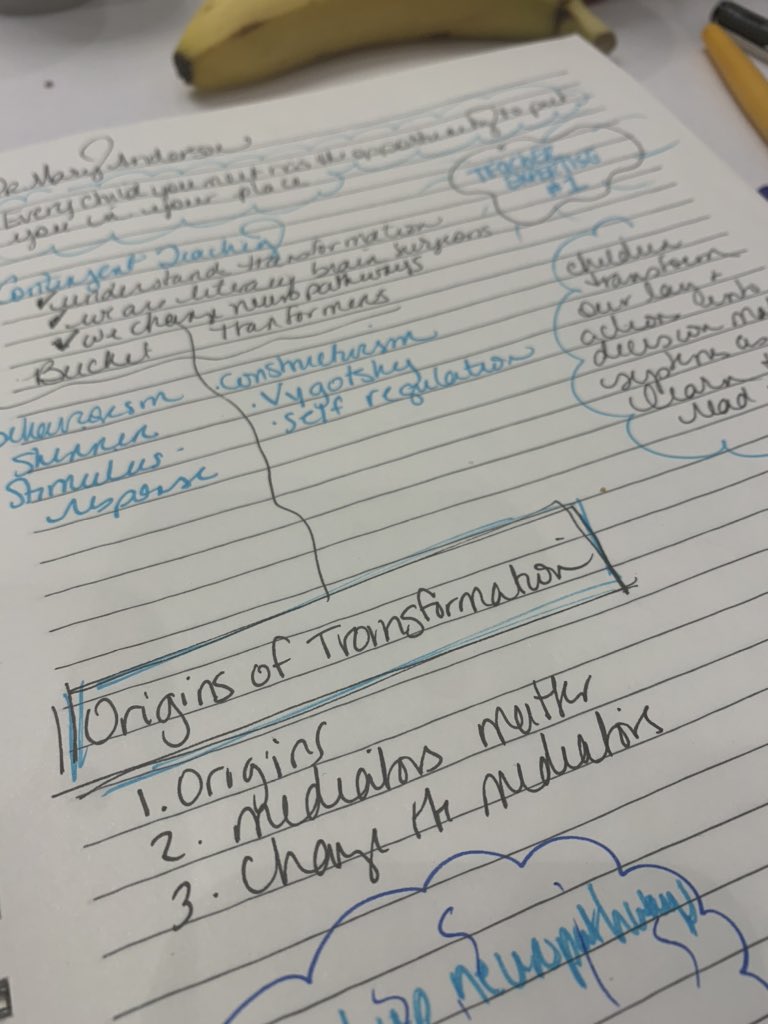 Dr Mary Anderson
Every child you meet has the opportunity to put
you in your place
TEACHER
EXPERTISE
#1
Contingent Teaching
✓ understand transformation
✓ we are literacy brain surgeons
✓ we change neuropathways
Bucket
Tranformers
Behaviorism
Skinner
Stimulus
response
· Constructivism
· Vygotsky
· self regulation
children
transform
our lang +
action into
decision
systems as
learn
read
Origins of Transformation
1. Origins
2. Mediators matter
3. Change the mediators
neuropathways